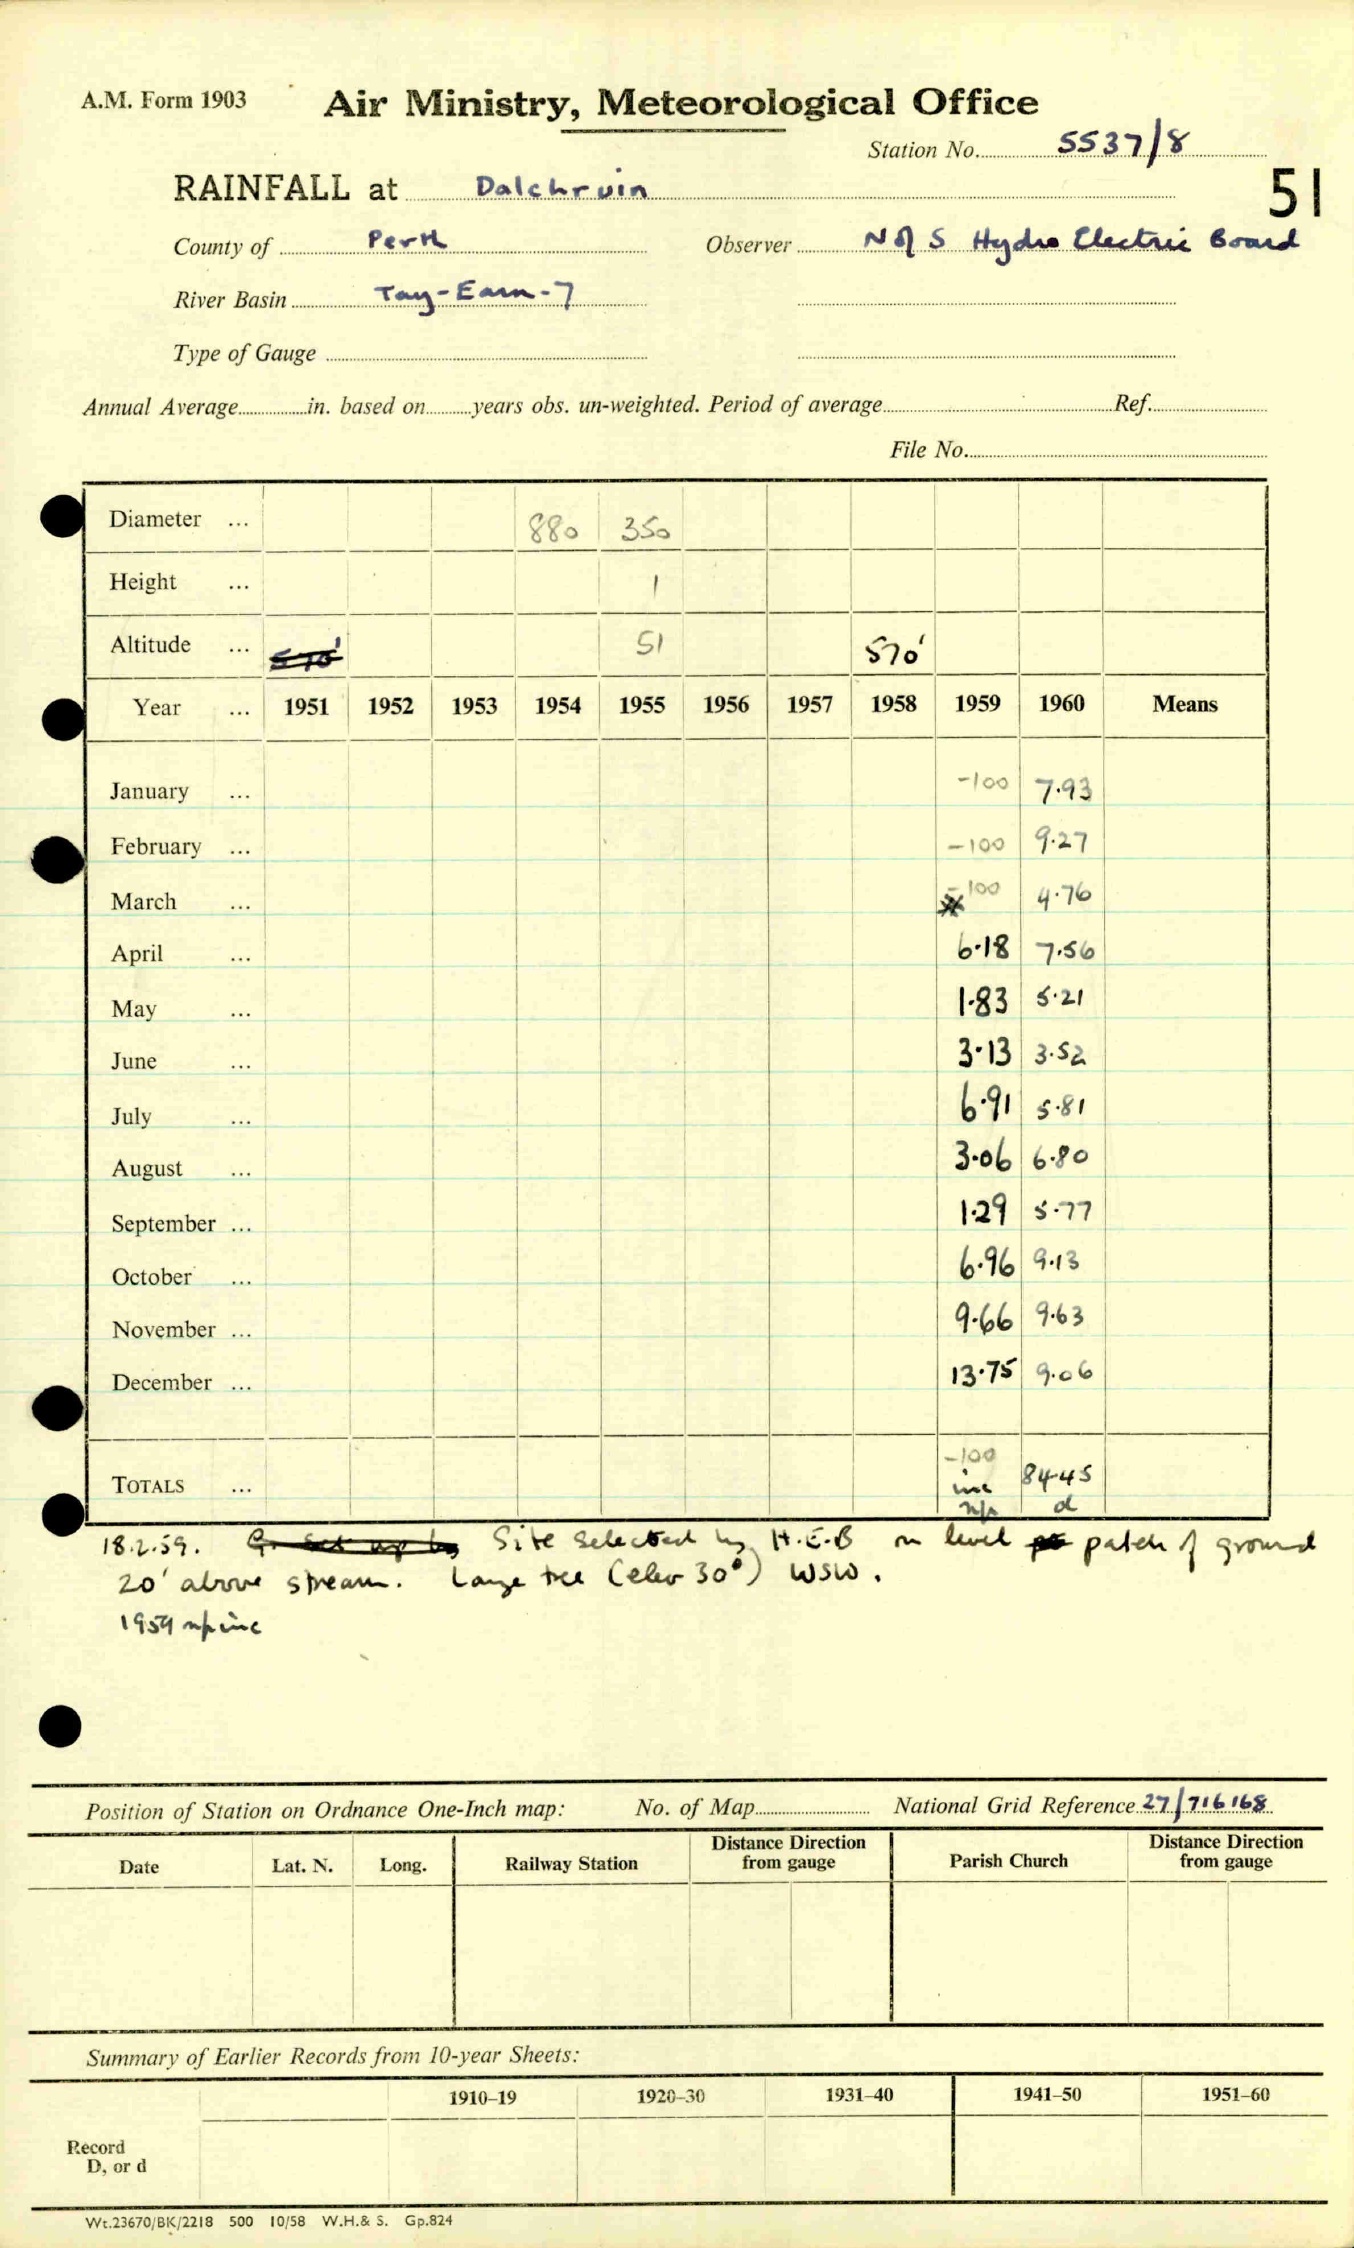 A.M. Form 1903
Air Ministry, Meteorological Office
Station No. 5537/8
51
RAINFALL at Dalchruin
County of Perth Observer N of S Hydro Electric Board
River Basin Tay-Earn-7
Type of Gauge
Annual Average in. based on years obs. un-weighted. Period of average Ref.
File No.
Diameter ... 880 350
Height ... 1
Altitude ... 570' 51 570'
Year ... 1951 1952 1953 1954 1955 1956 1957 1958 1959 1960 Means
January ... -100 7.93
February ... -100 9.27
March ... -100 4.76
April ... 6.18 7.56
May ... 1.83 5.21
June ... 3.13 3.52
July ... 6.91 5.81
August ... 3.06 6.80
September ... 1.29 5.77
October ... 6.96 9.13
November ... 9.66 9.63
December ... 13.75 9.06
-100
TOTALS ... inc 84.45
np d
18.2.59. G. set up by Site selected by H.E.B on level patch of ground
20' above stream. Large tree (elev 30°) WSW.
1959 np inc
Position of Station on Ordnance One-Inch map: No. of Map National Grid Reference 27/716168
Date Lat. N. Long. Railway Station Distance Direction from gauge Parish Church Distance Direction from gauge
Summary of Earlier Records from 10-year Sheets:
1910–19 1920–30 1931–40 1941–50 1951–60
Record
D, or d
Wt.23670/BK/2218 500 10/58 W.H.& S. Gp.824